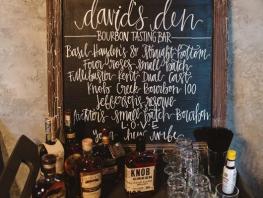 david's den
BOURBON TASTING BAR
Basil Hayden's & Straight Bottom
Four roses small batch
Dual Cast
Knob Creek Bourbon 100
Jefferson's reserve
small Batch Bourbon
LOVE
your new wife
KNOB